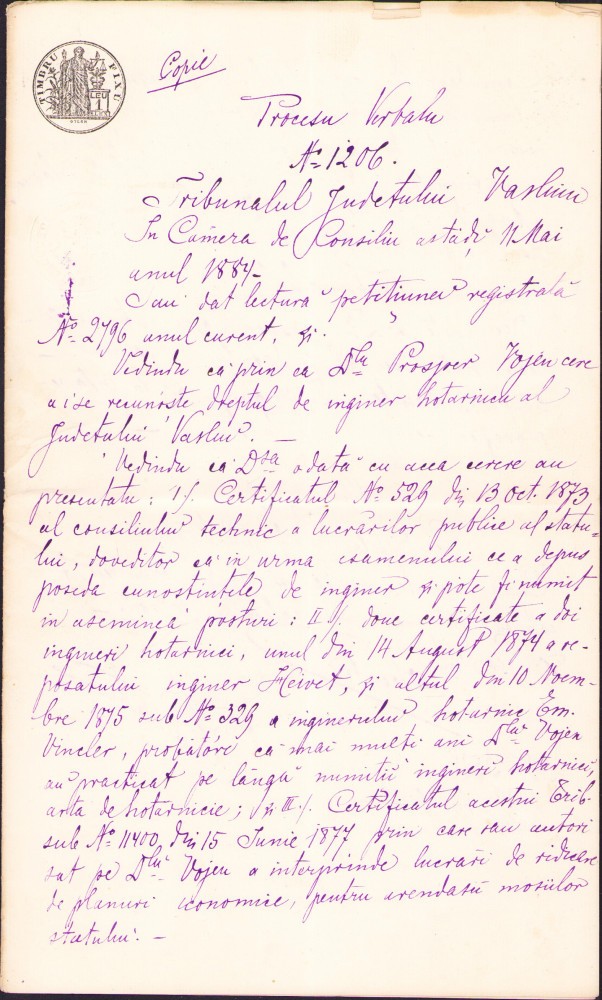 TIMBRU FIXU
LEU
1
STERN
Copie
Procesu Verbalu
No 1206.
Tribunalul Judetului Vasluiu
In Camera de Consiliu astădi 11 Mai
anul 1884-
Sau dat lectură petitiunei registrată
No 2796 anul curent, și.
Vedindu că prin ea Dlu Prosper Vojen cere
a i se recunoște dreptul de inginer hotarnicu al
Judetului Vaslui. —
Vedindu că Dsa odată cu acea cerere au
presentatu: I/. Certificatul No 529 din 13 Oct. 1873
al consiliului technic a lucrărilor publice al statu-
lui, doveditor că in urma esamenului ce a depus
poseda cunostintele de inginer și pote fi numit
in aseminea posturi: II/. doue certificate a doi
ingineri hotarnici, unul din 14 August 1874 a re-
posatului inginer Heivet, și altul din 10 Noem-
bre 1875 sub No 329 a inginerului hotarnic Em.
Vincler, probatóre că mai multi ani Dlui Vojen
au practicat pe lângă numitii ingineri hotarnici,
arta de hotarnicie; și III/. Certificatul acestui Trib.
sub No 11400 din 15 Iunie 1877 prin care sau autori
sat pe Dlui Vojen a interprinde lucrări de ridicare
de planuri economice, pentru arendasii mosiilor
statului. —